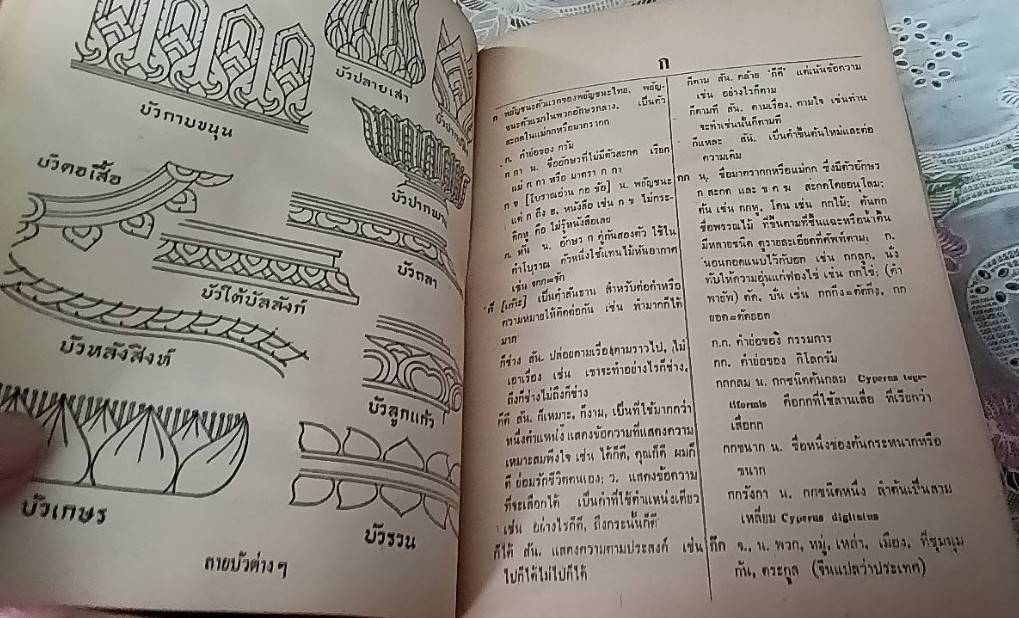 บัวกาบขนุน
บัวปลายเสา
บัวคอเสื้อ
บัวปากพาน
บัวถลา
บัวใต้บัลลังก์
บัวหลังสิงห์
บัวลูกแก้ว
บัวเกษร
บัวรวน
ลายบัวต่างๆ
ก
ก พยัญชนะตัวแรกของพยัญชนะไทย, พยัญ-
ชนะตัวแรกในพวกอักษรกลาง, เป็นตัว
สะกดในแม่กกหรือมาตรากก
ก. คำย่อของ กรัม
ก กา น. ชื่ออักษรที่ไม่มีตัวสะกด เรียก
แม่ ก กา หรือ มาตรา ก กา
ก ข [โบราณอ่าน กอ ข้อ] น. พยัญชนะ
แต่ ก ถึง ฮ, หนังสือ เช่น ก ข ไม่กระ-
ดิกหู คือ ไม่รู้หนังสือเลย
ก. หัน น. อักษร ก คู่กันสองตัว ใช้ใน
คำโบราณ ตัวหนึ่งใช้แทนไม้หันอากาศ
เช่น จกก=จัก
ก็ [เก้าะ] เป็นคำสันธาน สำหรับต่อคำหรือ
ความหมายให้ติดต่อกัน เช่น ทำมากก็ได้
มาก
ก็ช่าง สัน. ปล่อยตามเรื่องตามราวไป, ไม่
เอาเรื่อง เช่น เขาจะทำอย่างไรก็ช่าง,
ถึงก็ช่างไม่ถึงก็ช่าง
ก็ดี สัน. ก็เหมาะ, ก็งาม, เป็นที่ใช้มากกว่า
หนึ่งตำแหน่ง แสดงข้อความที่แสดงความ
เหมาะสมพึงใจ เช่น ได้ก็ดี, คุณก็ดี ผมก็
ดี ย่อมรักชีวิตตนเอง; ว. แสดงข้อความ
ที่จะเลือกได้ เป็นคำที่ใช้ตำแหน่งเดียว
เช่น อย่างไรก็ดี, ถึงกระนั้นก็ดี
ก็ได้ สัน. แสดงความตามประสงค์ เช่น
ไปก็ได้ไม่ไปก็ได้
ก็ตาม สัน. คล้าย 'ก็ดี' แต่เน้นข้อความ
เช่น อย่างไรก็ตาม
ก็ตามที สัน. ตามเรื่อง, ตามใจ เช่นท่าน
จะทำเช่นนั้นก็ตามที
ก็แหละ สัน. เป็นคำขึ้นต้นใหม่และต่อ
ความเดิม
กก น. ชื่อมาตรากกหรือแม่กก ซึ่งมีตัวอักษร
ก สะกด และ ข ค ฆ สะกดโดยอนุโลม;
ต้น เช่น กกหู, โคน เช่น กกไม้; ต้นกก
ชื่อพรรณไม้ ที่ขึ้นตามที่ชื้นแฉะหรือน้ำตื้น
มีหลายชนิด ดูรายละเอียดที่ศัพท์ตาม; ก.
นอนกอดแนบไว้กับอก เช่น กกลูก, นั่ง
ทับให้ความอุ่นแก่ฟองไข่ เช่น กกไข่; (คำ
พายัพ) ตัด, บั่น เช่น กกกิ่ง=ตัดกิ่ง, กก
ยอด=ตัดยอด
ก.ก. คำย่อของ กรรมการ
กก. คำย่อของ กิโลกรัม
กกกลม น. กกชนิดต้นกลม Cyperus tege-
tiformis คือกกที่ใช้สานเสื่อ ที่เรียกว่า
เสื่อกก
กกขนาก น. ชื่อหนึ่งของต้นกระหนากหรือ
ขนาก
กกรังกา น. กกชนิดหนึ่ง ลำต้นเป็นสาม
เหลี่ยม Cyperus digitatus
ก๊ก จ., น. พวก, หมู่, เหล่า, เมือง, ที่ชุมนุม
กัน, ตระกูล (จีนแปลว่าประเทศ)